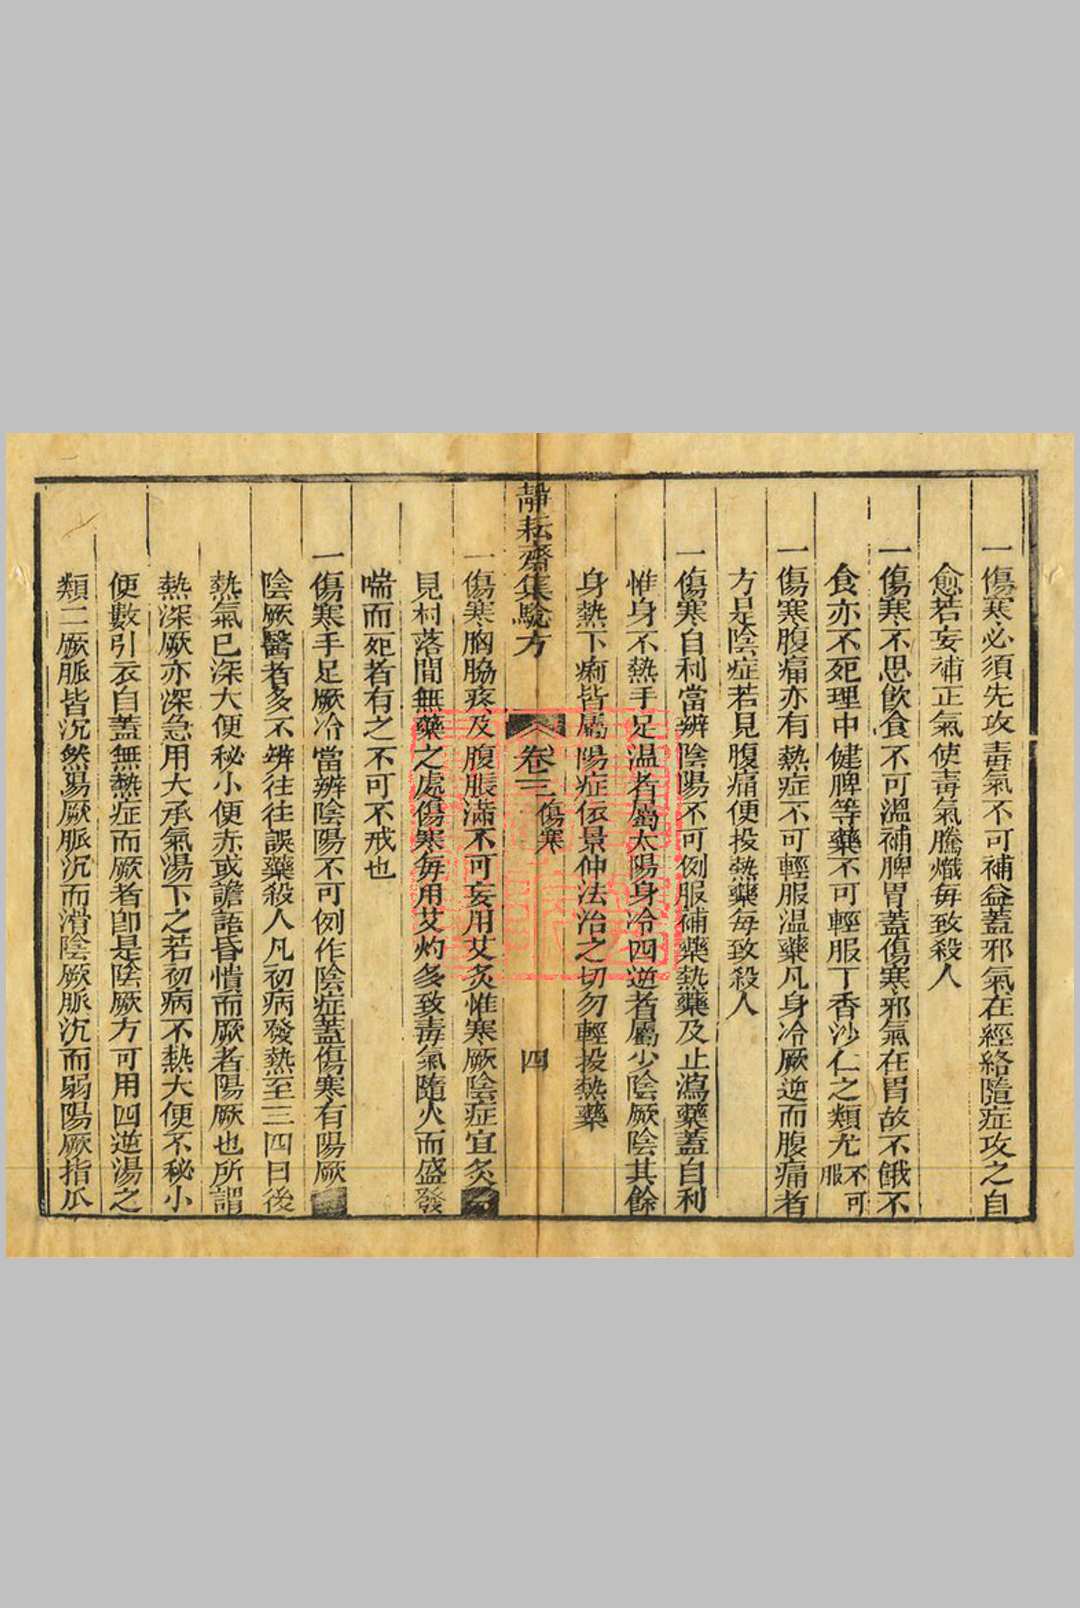 一傷寒必須先攻毒氣不可補益蓋邪氣在經絡隨症攻之自
愈若妄補正氣使毒氣騰熾每致殺人
一傷寒不思飲食不可溫補脾胃蓋傷寒邪氣在胃故不餓不
食亦不死理中健脾等藥不可輕服丁香沙仁之類尤不可服
一傷寒腹痛亦有熱症不可輕服溫藥凡身冷厥逆而腹痛者
方是陰症若見腹痛便投熱藥每致殺人
一傷寒自利當辨陰陽不可例服補藥熱藥及止瀉藥蓋自利
惟身不熱手足溫者屬太陽身冷四逆者屬少陰厥陰其餘
身熱下痢皆屬陽症依景仲法治之切勿輕投熱藥
靜耘齋集驗方 卷三 傷寒 四
一傷寒胸脇疼及腹脹滿不可妄用艾灸惟寒厥陰症宜灸
見村落間無藥之處傷寒每用艾灼多致毒氣隨火而盛發
喘而死者有之不可不戒也
一傷寒手足厥冷當辨陰陽不可例作陰症蓋傷寒有陽厥
陰厥醫者多不辨往往誤藥殺人凡初病發熱至三四日後
熱氣已深大便秘小便赤或譫語昏憒而厥者陽厥也所謂
熱深厥亦深急用大承氣湯下之若初病不熱大便不秘小
便數引衣自蓋無熱症而厥者即是陰厥方可用四逆湯之
類二厥脈皆沉然陽厥脈沉而滑陰厥脈沉而弱陽厥指爪